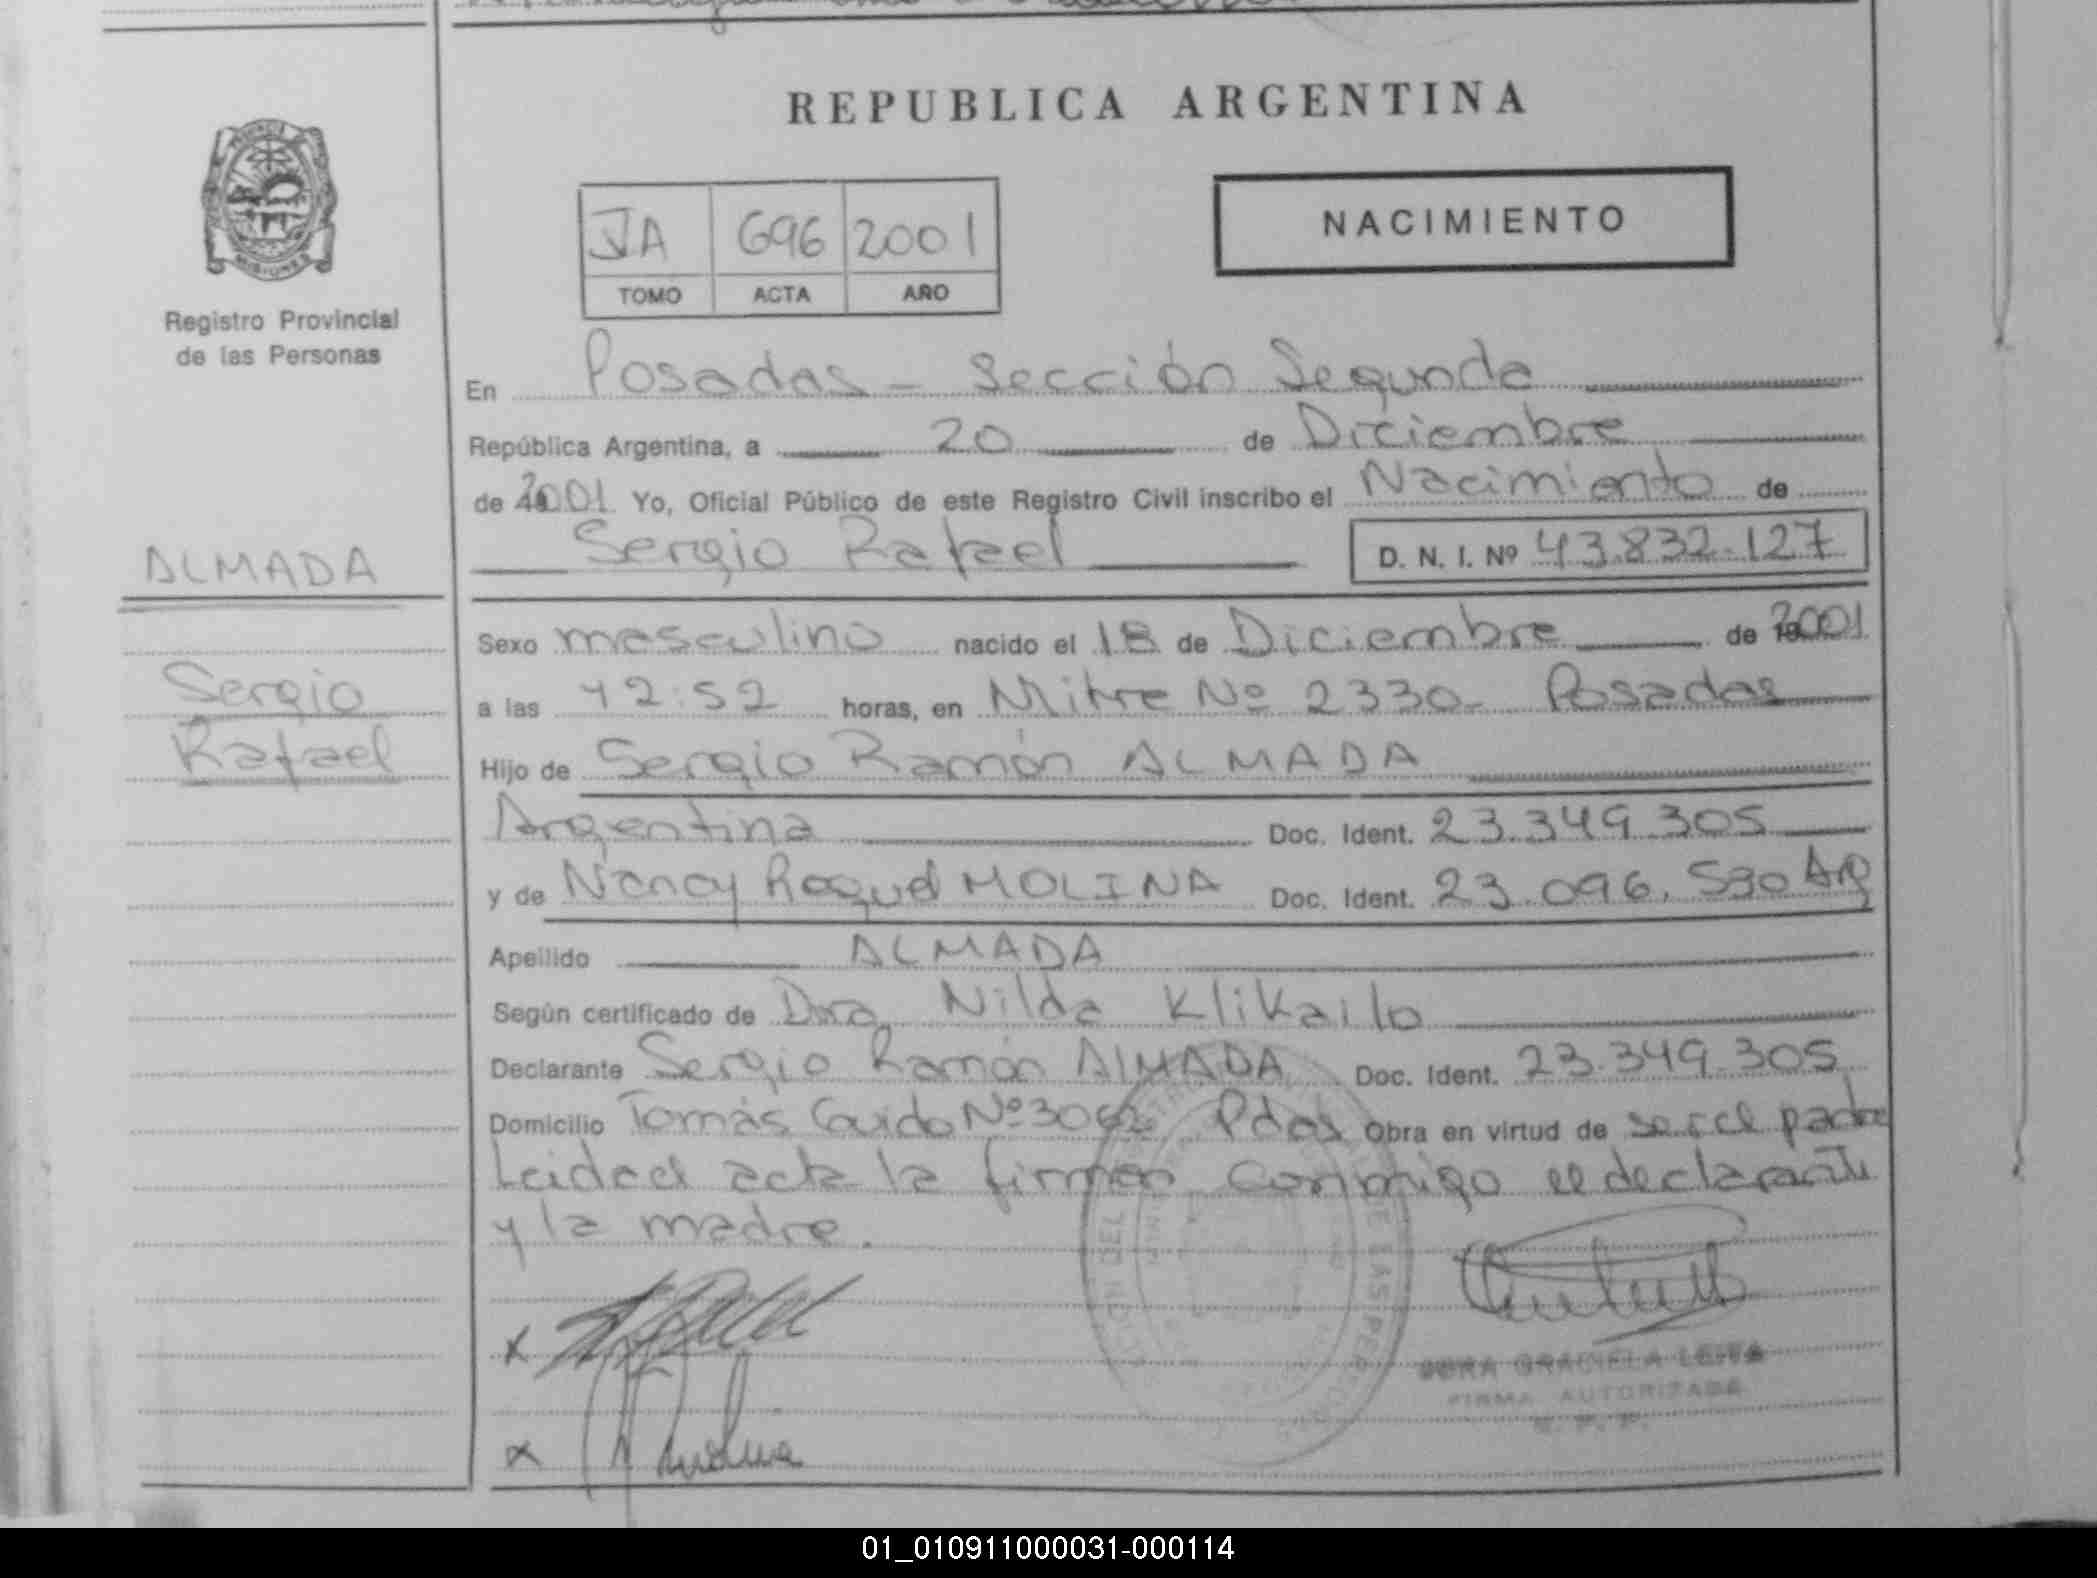 REPUBLICA ARGENTINA
MISIONES
Registro Provincial
de las Personas
NACIMIENTO
JA 696 2001
TOMO ACTA AÑO
En Posadas - Sección Segunda
República Argentina, a 20 de Diciembre
de 2001 Yo, Oficial Público de este Registro Civil inscribo el Nacimiento de
Sergio Rafael D. N. I. Nº 43.832.127
ALMADA
Sergio
Rafael
Sexo masculino nacido el 18 de Diciembre de 2001
a las 12:52 horas, en Mitre Nº 2330- Posadas
Hijo de Sergio Ramón ALMADA
Argentina Doc. Ident. 23.349.305
y de Nancy Raquel MOLINA Doc. Ident. 23.096.530 Arg
Apellido ALMADA
Según certificado de Dra Nilda Klikailo
Declarante Sergio Ramón ALMADA Doc. Ident. 23.349.305
Domicilio Tomás Guido Nº 3062 Pdas Obra en virtud de ser el padre
Leida el acta la firman conmigo el declarante
y la madre.
GRACIELA LEIVA
FIRMA AUTORIZADA
01_010911000031-000114